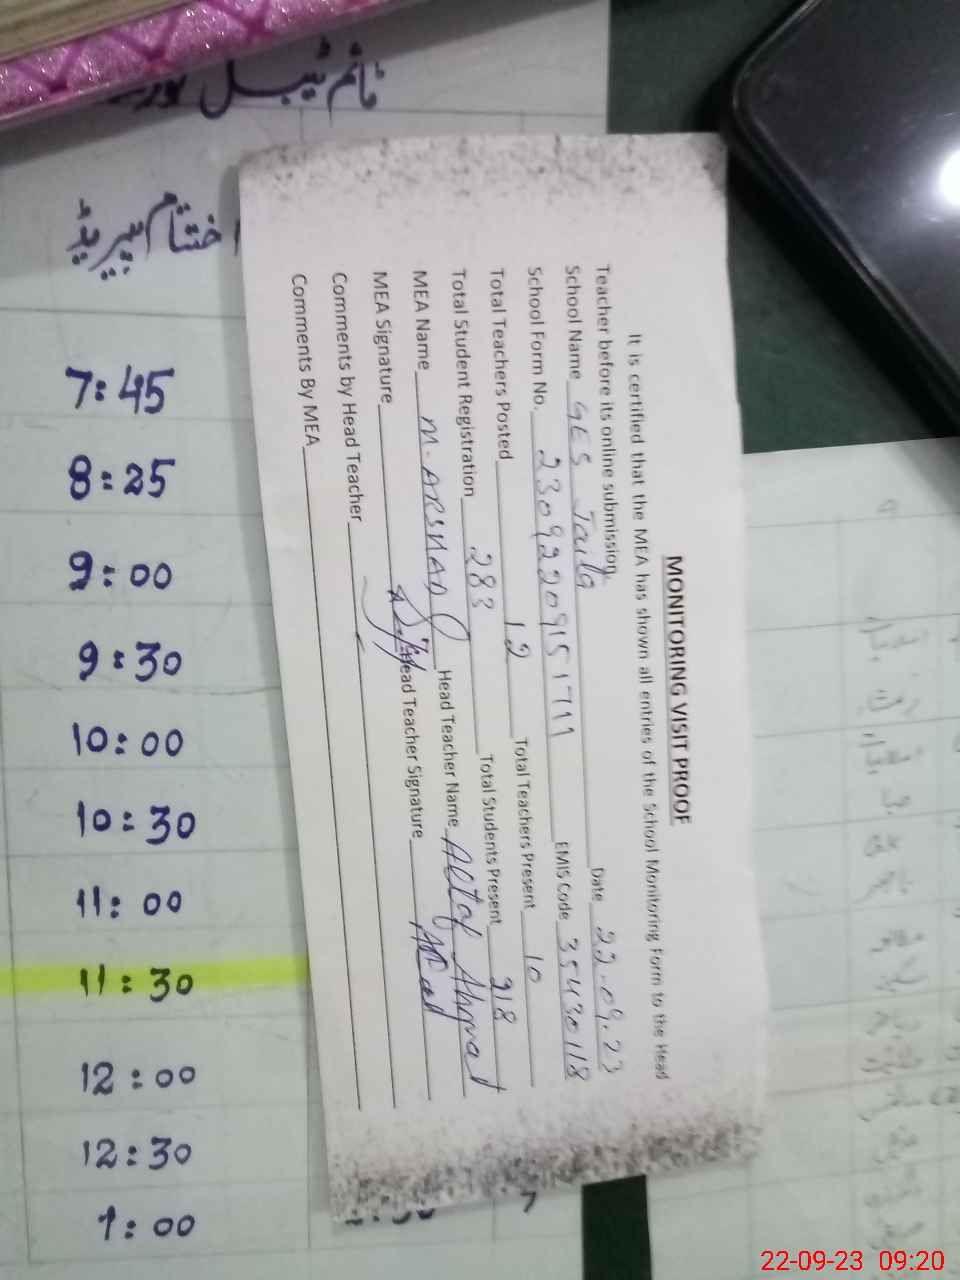 ٹائم ٹیبل
اختتام پیریڈ
7:45
8:25
9:00
9:30
10:00
10:30
11:00
11:30
12:00
12:30
1:00
MONITORING VISIT PROOF
It is certified that the MEA has shown all entries of the School Monitoring Form to the Head
Teacher before its online submission.
School Name GES Jaila Date 22-09-23
School Form No. 23092209151711 EMIS Code 35430118
Total Teachers Posted 12 Total Teachers Present 10
Total Student Registration 283 Total Students Present 218
MEA Name M. ARSHAD Head Teacher Name Altaf Ahmad
MEA Signature Head Teacher Signature
Comments by Head Teacher
Comments By MEA
22-09-23 09:20